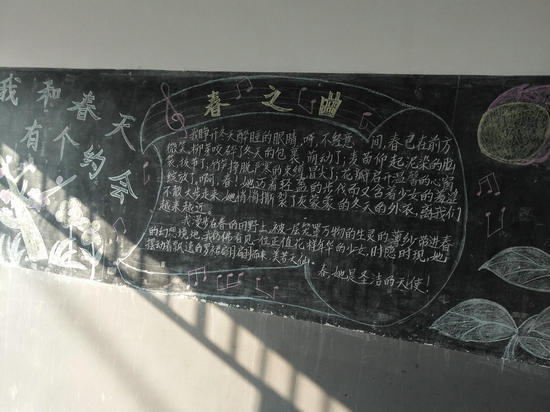 我和春天
有个约会
春之曲
我睁开冬天酣睡的眼睛,呀,不经意间,春已在前方
微笑,柳芽咬碎了冬天的包装,萌动了,麦苗仰起泥染的脑
袋,拔节了,竹笋挣脱严寒的束缚,冒尖了,花瓣启开温馨的心阁,
绽放了,啊,春,她迈着轻盈的步伐而又含着少女的羞涩
不敢大步走来,她悄悄撕裂了灰蒙蒙的冬天的外衣,离我们
越来越近
我漫步在春的田野上,被一层笼罩万物的生灵的薄纱带进春
的幻想境地,我仿佛看见一位正值花样年华的少女,时隐时现,她
摆动着飘逸的罗裙翩翩而来,美若天仙。
春,她是圣洁的天使!